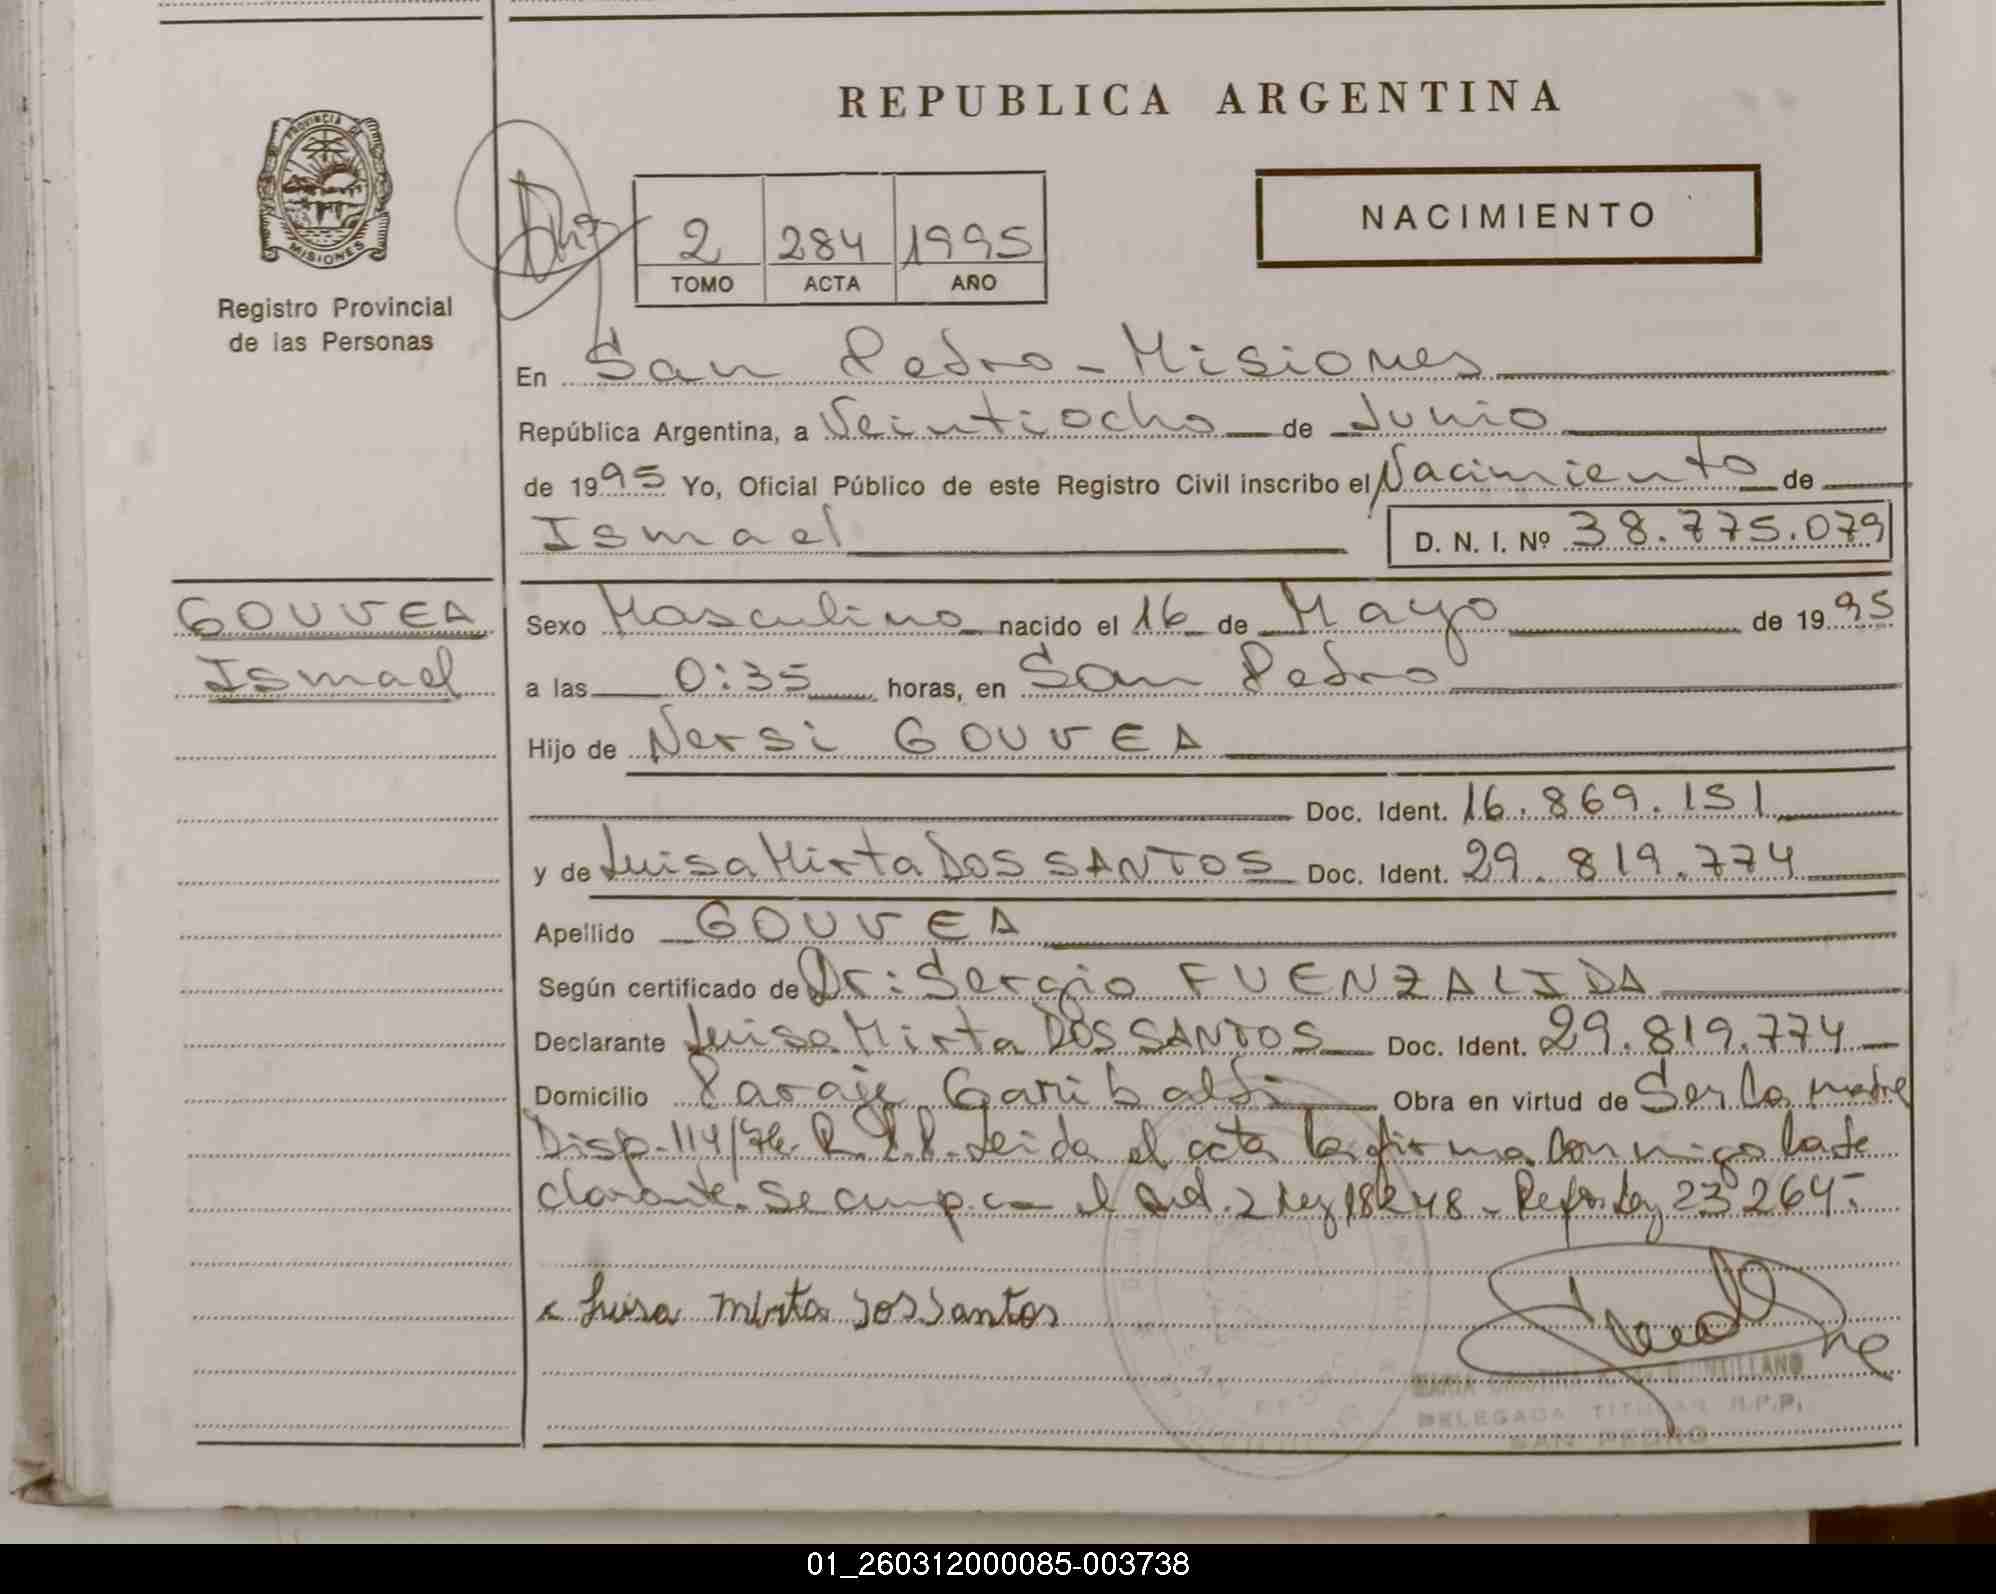 REPUBLICA ARGENTINA
PROVINCIA DE
MISIONES
Registro Provincial
de las Personas
2 284 1995
TOMO ACTA AÑO
NACIMIENTO
En San Pedro - Misiones
República Argentina, a Veintiocho de Junio
de 1995 Yo, Oficial Público de este Registro Civil inscribo el Nacimiento de
Ismael D. N. I. Nº 38.775.079
GOUVEA
Ismael
Sexo Masculino nacido el 16 de Mayo de 1995
a las 0:35 horas, en San Pedro
Hijo de Nersi GOUVEA
Doc. Ident. 16.869.151
y de Luisa Mirta DOS SANTOS Doc. Ident. 29.819.774
Apellido GOUVEA
Según certificado de Dr: Sergio FUENZALIDA
Declarante Luisa Mirta DOS SANTOS Doc. Ident. 29.819.774
Domicilio Paraje Garibaldi Obra en virtud de Ser la madre
Disp. 114/76 R.P.P. Leida el acta la firma conmigo la de
clarante. Se cump. con el Art. 2 Ley 18248 - Ref. Ley 23264.-
Luisa Mirta Dos Santos
MARIA CRISTINA
DELEGADA TITULAR R.P.P.
SAN PEDRO
01_260312000085-003738